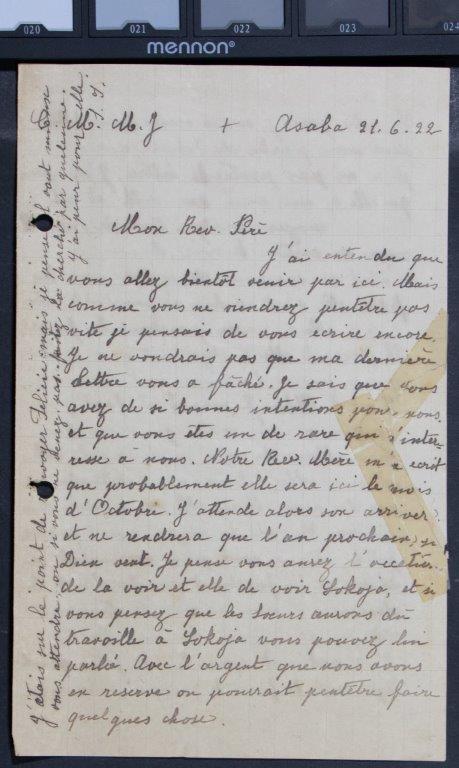 020 021 022 023 024
mennon®
M. M. J + Asaba 21.6.22
Mon Rev. Pérè
J'ai entendu que
vous allez bientôt venir par ici. Mais
comme vous ne viendrez peutêtre pas
vite je pensais de vous ecrire encore.
Je ne voudrais pas que ma dernière
Lettre vous a fâché. Je sais que vous
avez de si bonnes intentions pour nous
et que vous êtes un de rare qui s'inter-
resse à nous. Notre Rev. Mère m'a ecrit
que probablement elle sera ici le mois
d'Octobre. J'attende alors son arriver
et ne rendrera que l'an prochain, si
Dieu veut. Je pense vous aurez l'occation
de la voir et elle de voir Lokoja, et si
vous pensez que les Sœurs aurons du
travaille à Lokoja vous pouvez lui
parler. Avec l'argent que nous avons
en reserve on pourrait peutêtre faire
quelques chose.
J'étais sur le point de envoyer Felicie mais je pense il vaut mieux
vous attendre ou si vous ne venez pas faites la cherché par quelqu'une.
J'ai peur pour elle.